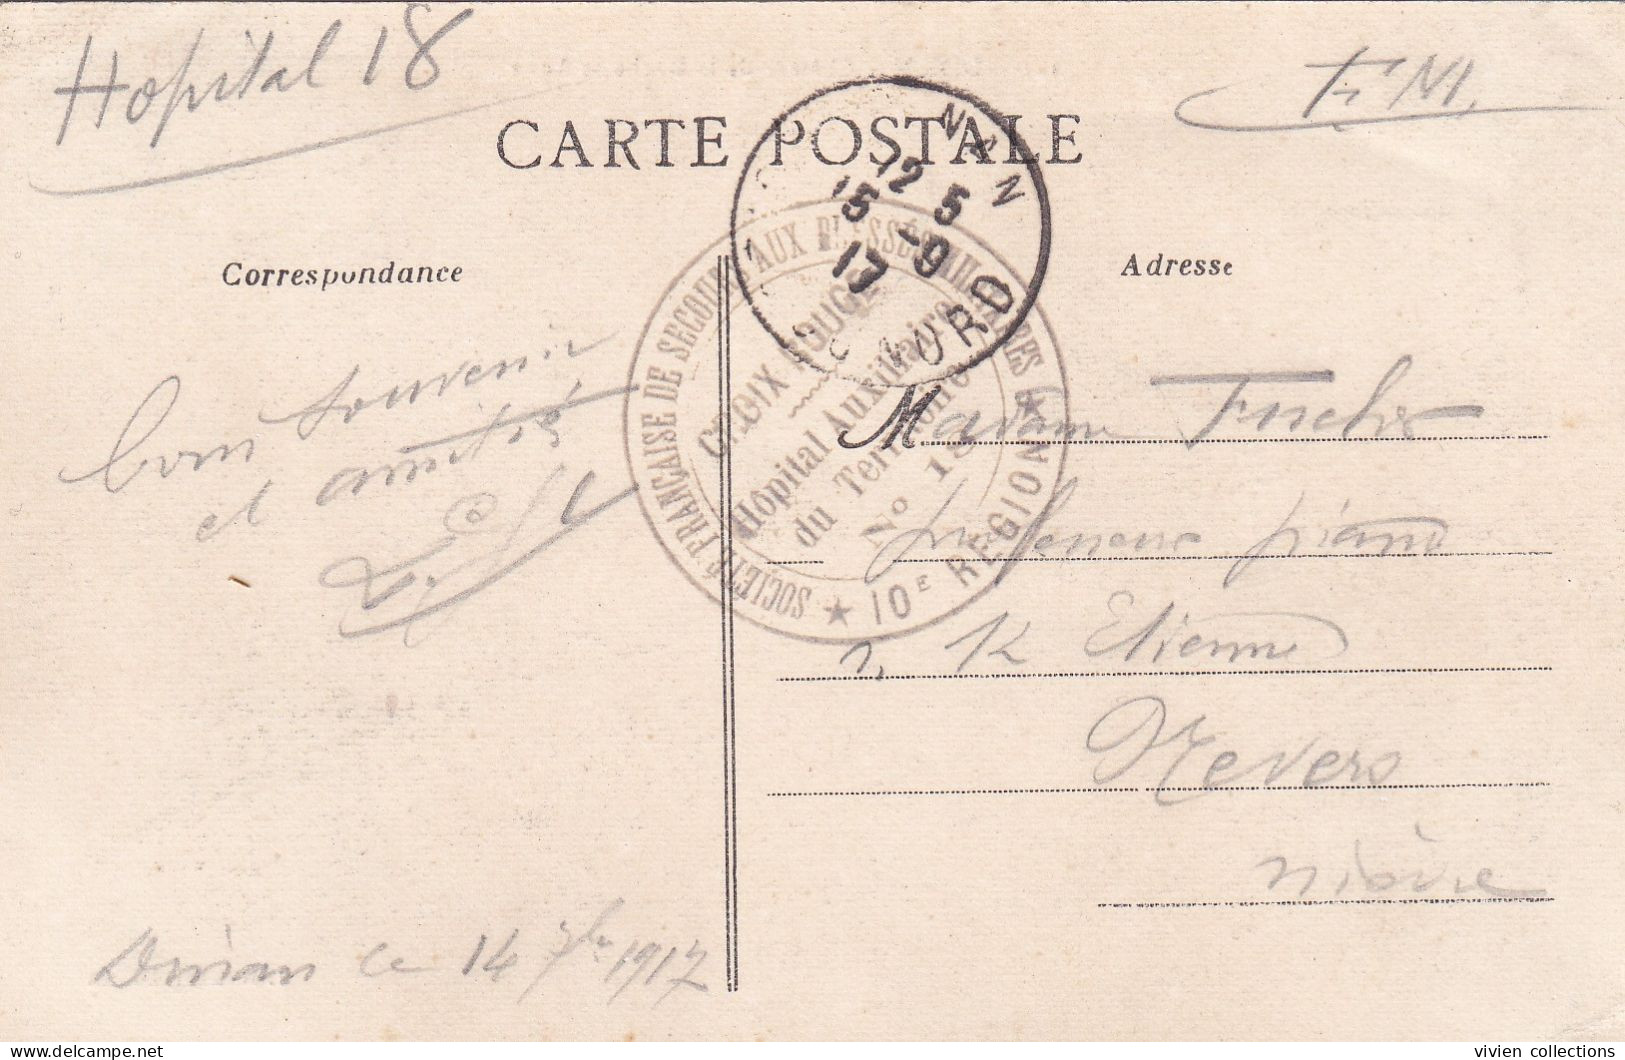 Hopital 18
F. M.
CARTE POSTALE
Correspondance
Adresse
DINAN
12 5
15 -9
17
NORD
SOCIÉTÉ FRANÇAISE DE SECOURS AUX BLESSÉS MILITAIRES
CROIX ROUGE
Hôpital Auxiliaire
du Territoire
No 18
★ 10E RÉGION ★
bon souvenir
et amitié
Madame Fuchs
professeur piano
r. St Etienne
Nevers
nièvre
Dinan ce 14 7bre 1917
vivien collections